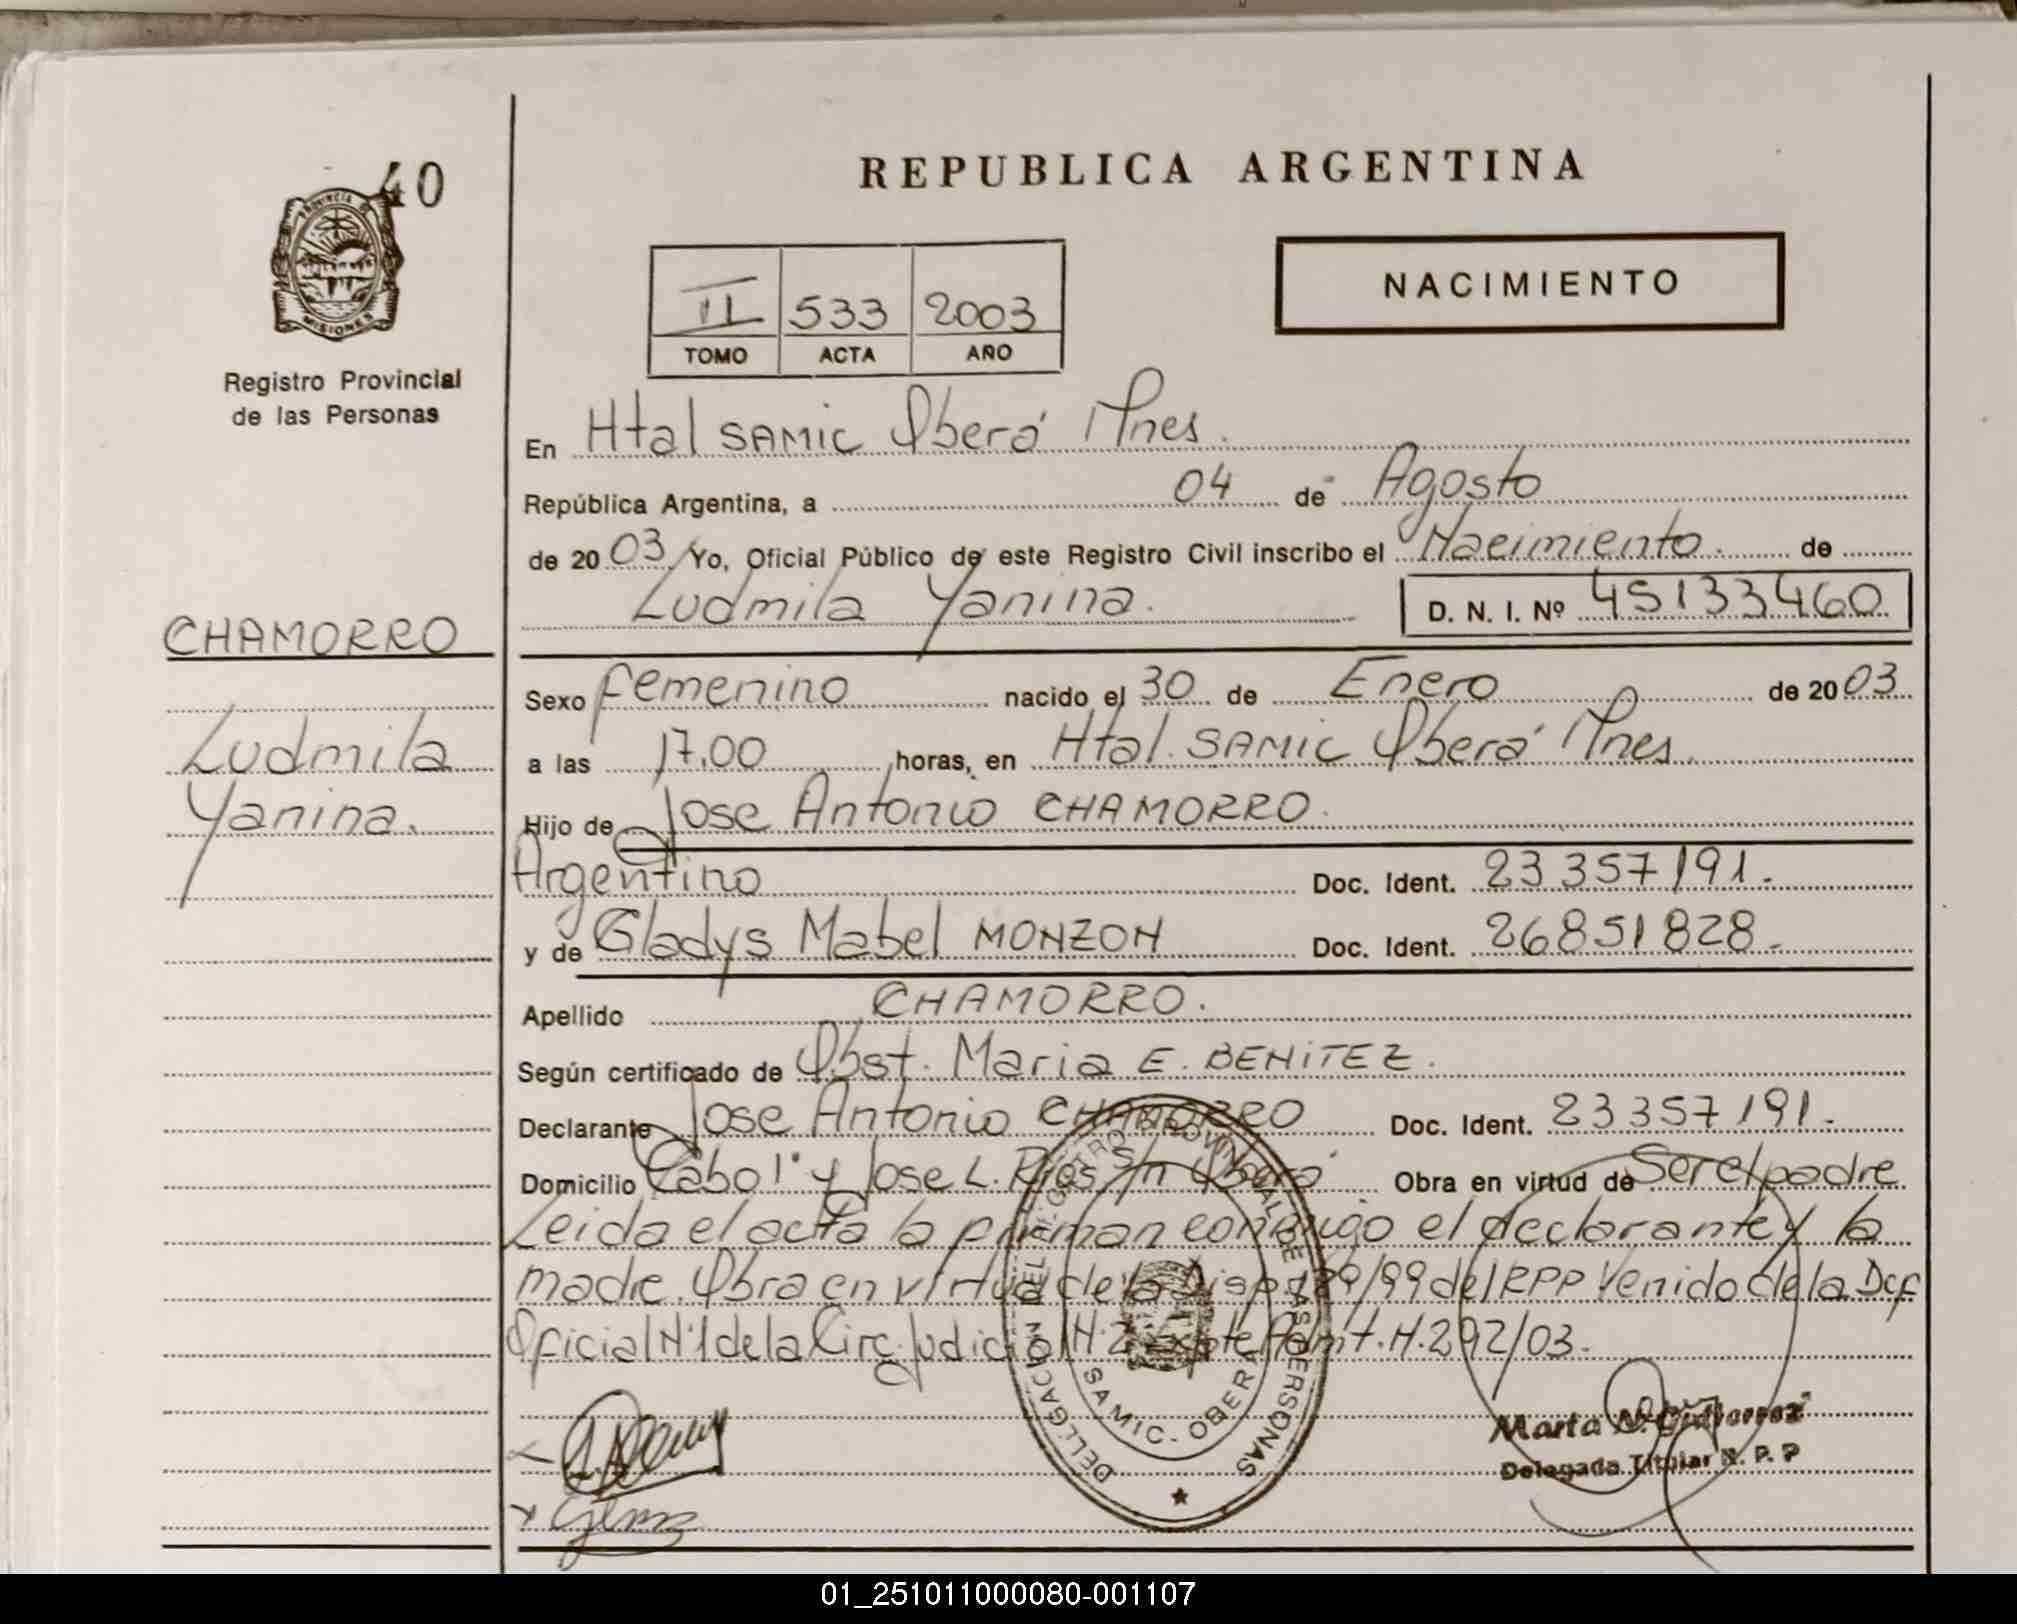 40
PROVINCIA DE
MISIONES
Registro Provincial
de las Personas
REPUBLICA ARGENTINA
NACIMIENTO
II 533 2003
TOMO ACTA AÑO
En Htal SAMIC Oberá Mnes.
República Argentina, a 04 de Agosto
de 20 03 Yo, Oficial Público de este Registro Civil inscribo el Nacimiento. de
Ludmila Yanina. D. N. I. Nº 45133460
CHAMORRO
Ludmila
Yanina.
Sexo femenino nacido el 30 de Enero de 20 03
a las 17,00 horas, en Htal. SAMIC Oberá Mnes.
Hijo de Jose Antonio CHAMORRO.
Argentino Doc. Ident. 23 357 191.
y de Gladys Mabel MONZON Doc. Ident. 26851828.
Apellido CHAMORRO.
Según certificado de Obst. Maria E. BENITEZ.
Declarante Jose Antonio CHAMORRO Doc. Ident. 23357191.
Domicilio Cabo 1° y Jose L. Rios s/n Oberá Obra en virtud de Ser el padre
Leida el acta la firman conmigo el declarante y la
madre. Obra en virtud de la Disp. /99 del RPP Venido de la Def
Oficial N°1 de la Circ. Judicial N. 2 Expte Admt. N. 292/03.
DELEGACION DEL REGISTRO PROVINCIAL DE LAS PERSONAS
SAMIC - OBERA
Marta N. Gutierrez
Delegada Titular R. P. P
01_251011000080-001107